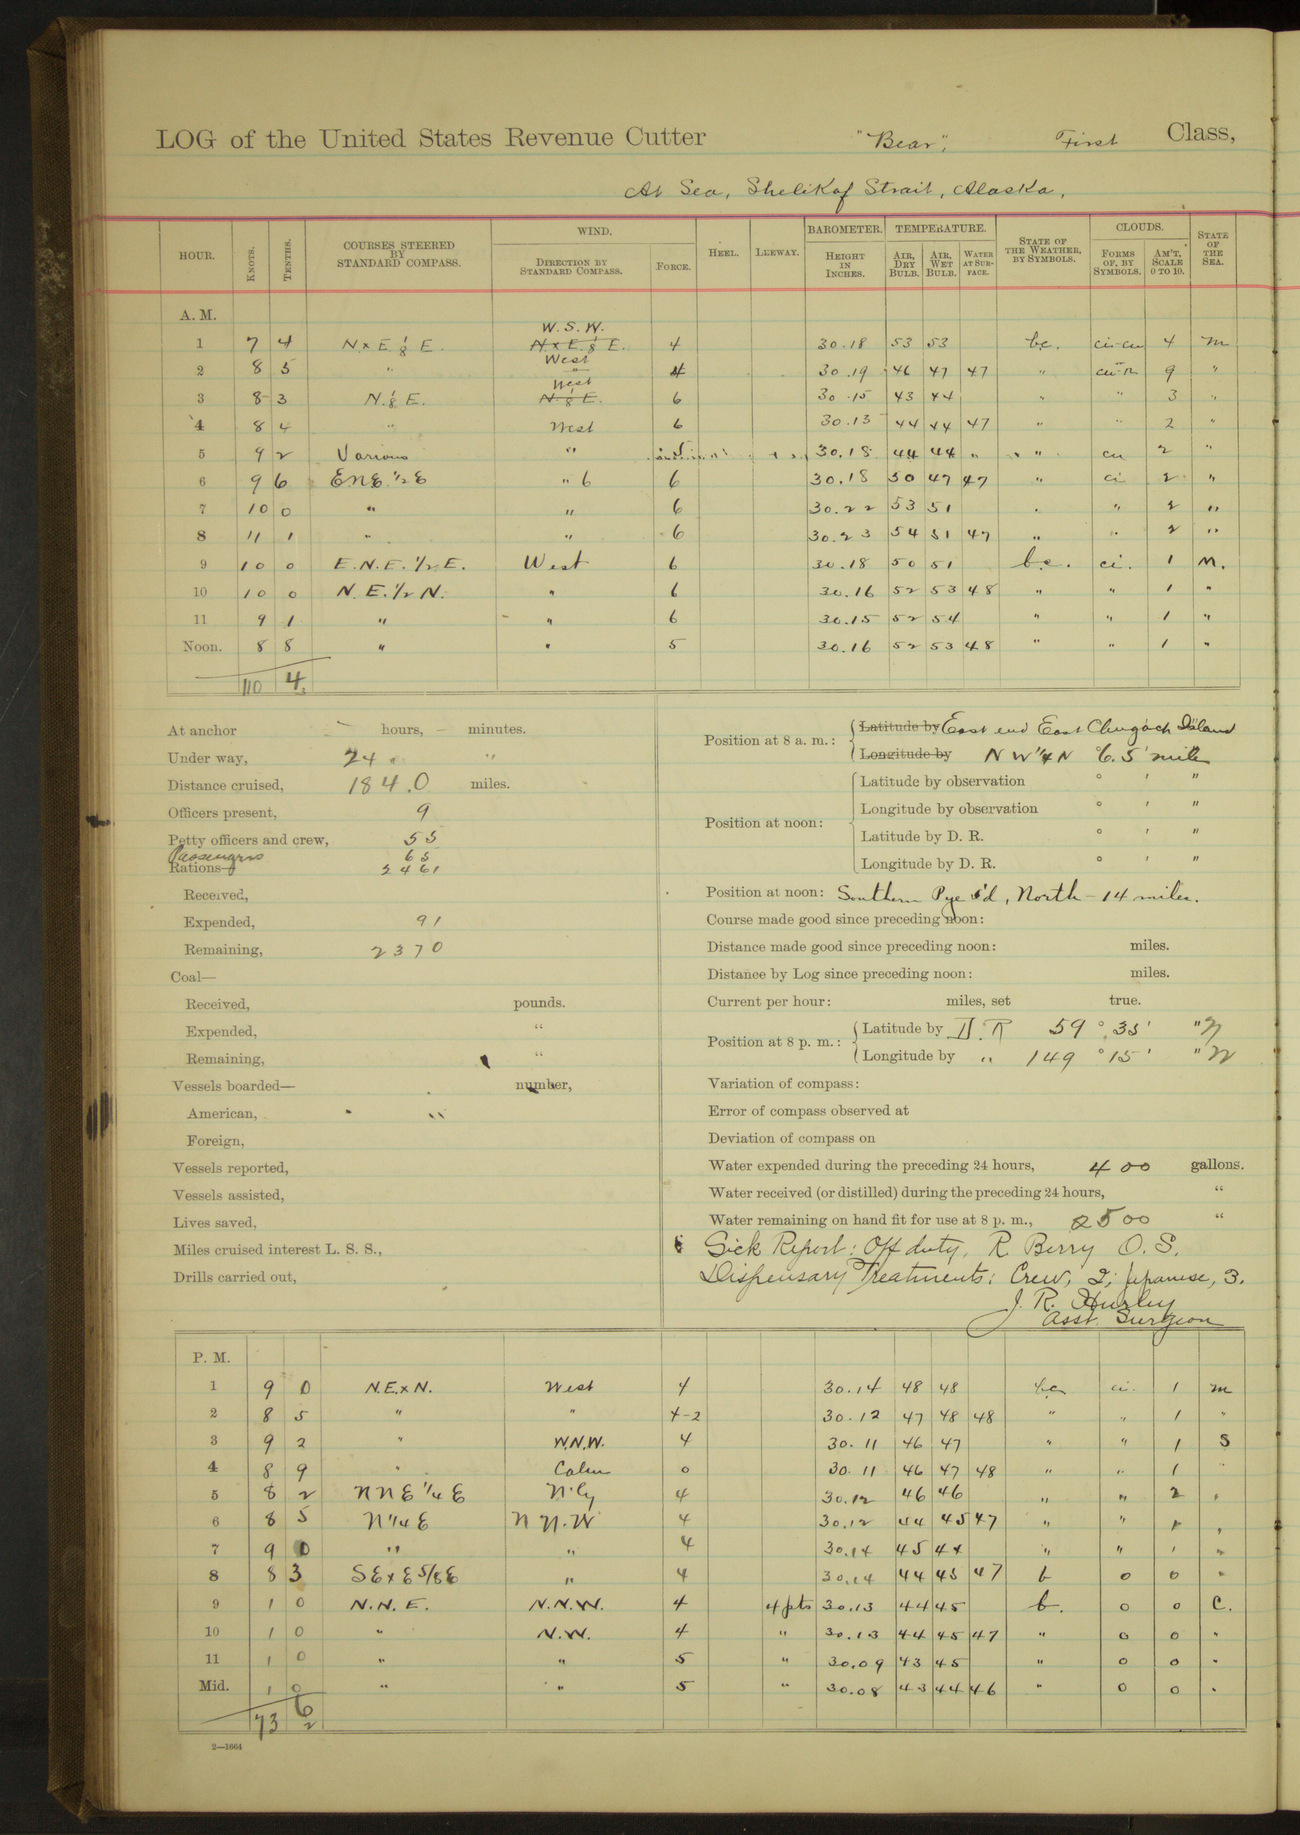 LOG of the United States Revenue Cutter "Bear", First Class,
At Sea, Shelikof Strait, Alaska,
HOUR. KNOTS. TENTHS. COURSES STEERED BY STANDARD COMPASS. WIND. DIRECTION BY STANDARD COMPASS. FORCE. HEEL. LEEWAY. BAROMETER. HEIGHT IN INCHES. TEMPERATURE. AIR, DRY BULB. AIR, WET BULB. WATER AT SURFACE. STATE OF THE WEATHER, BY SYMBOLS. CLOUDS. FORMS OF, BY SYMBOLS. AM'T, SCALE 0 TO 10. STATE OF THE SEA.
A. M.
W. S. W.
1 7 4 N x E 1/8 E. N x E. 1/8 E. 4 30.18 53 53 bc. ci-cu 4 m
West
2 8 5 " " 4 30.19 46 47 47 " 9 "
West
3 8 3 N. 1/8 E. N. 1/8 E. 6 30.15 43 44 " " 3 "
4 8 4 " West 6 30.13 44 44 47 " " 2 "
5 9 2 Various " 30.18 44 44 " " cu 2 "
6 9 6 ENE 1/2 E " 6 6 30.18 50 47 47 " ci 2 "
7 10 0 " " 6 30.22 53 51 " 2 "
8 11 1 " " 6 30.23 54 51 47 " " 2 "
9 10 0 E.N.E. 1/2 E. West 6 30.18 50 51 b.c. ci. 1 m.
10 10 0 N. E. 1/2 N. " 6 30.16 52 53 48 " " 1 "
11 9 1 " " 6 30.15 52 54 " " 1 "
Noon. 8 8 " " 5 30.16 52 53 48 " " 1 "
110 4
At anchor - hours, - minutes.
Under way, 24 " "
Distance cruised, 184.0 miles.
Officers present, 9
Petty officers and crew, 55
Passengers 65
Rations— 2461
Received,
Expended, 91
Remaining, 2370
Coal—
Received, pounds.
Expended, "
Remaining, "
Vessels boarded— number,
American, "
Foreign,
Vessels reported,
Vessels assisted,
Lives saved,
Miles cruised interest L. S. S.,
Drills carried out,
Position at 8 a. m.: Latitude by East end East Chugach Island
Longitude by N W 1/4 N ° 6.5 ' miles
Position at noon: Latitude by observation ° ' "
Longitude by observation ° ' "
Latitude by D. R. ° ' "
Longitude by D. R. ° ' "
Position at noon: Southern Pye I'd, North - 14 miles.
Course made good since preceding noon:
Distance made good since preceding noon: miles.
Distance by Log since preceding noon: miles.
Current per hour: miles, set true.
Position at 8 p. m.: Latitude by D. R 59 ° 35 ' " N
Longitude by " 149 ° 15 ' " W
Variation of compass:
Error of compass observed at
Deviation of compass on
Water expended during the preceding 24 hours, 400 gallons.
Water received (or distilled) during the preceding 24 hours, "
Water remaining on hand fit for use at 8 p. m., 2500 "
Sick Report: Off duty, R. Berry O. S.
Dispensary Treatments: Crew, 2; Japanese, 3.
J. R. Hurley
Asst. Surgeon
P. M.
1 9 0 N.E.xN. West 4 30.14 48 48 bc ci. 1 m
2 8 5 " " 4-2 30.12 47 48 48 " " 1 "
3 9 2 " W.N.W. 4 30.11 46 47 " " 1 S
4 8 9 " Calm 0 30.11 46 47 48 " " 1 "
5 8 2 NNE 1/4 E N'ly 4 30.12 46 46 " " 2 "
6 8 5 N 1/4 E N N.W 4 30.12 44 45 47 " " 1 "
7 9 0 " " 4 30.14 45 44 " " ' "
8 8 3 SExE 5/8 E " 4 30.14 44 45 47 b 0 0 "
9 1 0 N.N.E. N.N.W. 4 4 pts 30.13 44 45 b. 0 0 C.
10 1 0 " N.W. 4 " 30.13 44 45 47 " 0 0 "
11 1 0 " " 5 " 30.09 43 45 " 0 0 "
Mid. 1 0 " " 5 " 30.08 43 44 46 " 0 0 "
73 6
2
2—1664